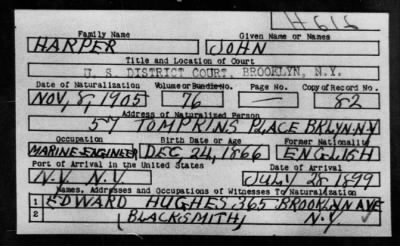 H616
Family Name Given Name or Names
HARPER JOHN
Title and Location of Court
U. S. DISTRICT COURT, BROOKLYN, N.Y.
Date of Naturalization Volume or Bundle No. Page No. Copy of Record No.
NOV, 8, 1905 76 — 82
Address of Naturalized Person
57 TOMPKINS PLACE BKLYN. N.Y
Occupation Birth Date or Age Former Nationality
MARINE ENGINEER DEC 24, 1866 ENGLISH
Port of Arrival in the United States Date of Arrival
N.Y. N.Y. JULY 28 1899
Names, Addresses and Occupations of Witnesses To Naturalization
1 EDWARD HUGHES 365 BROOKLYN AVE
2 (BLACKSMITH) N.Y.